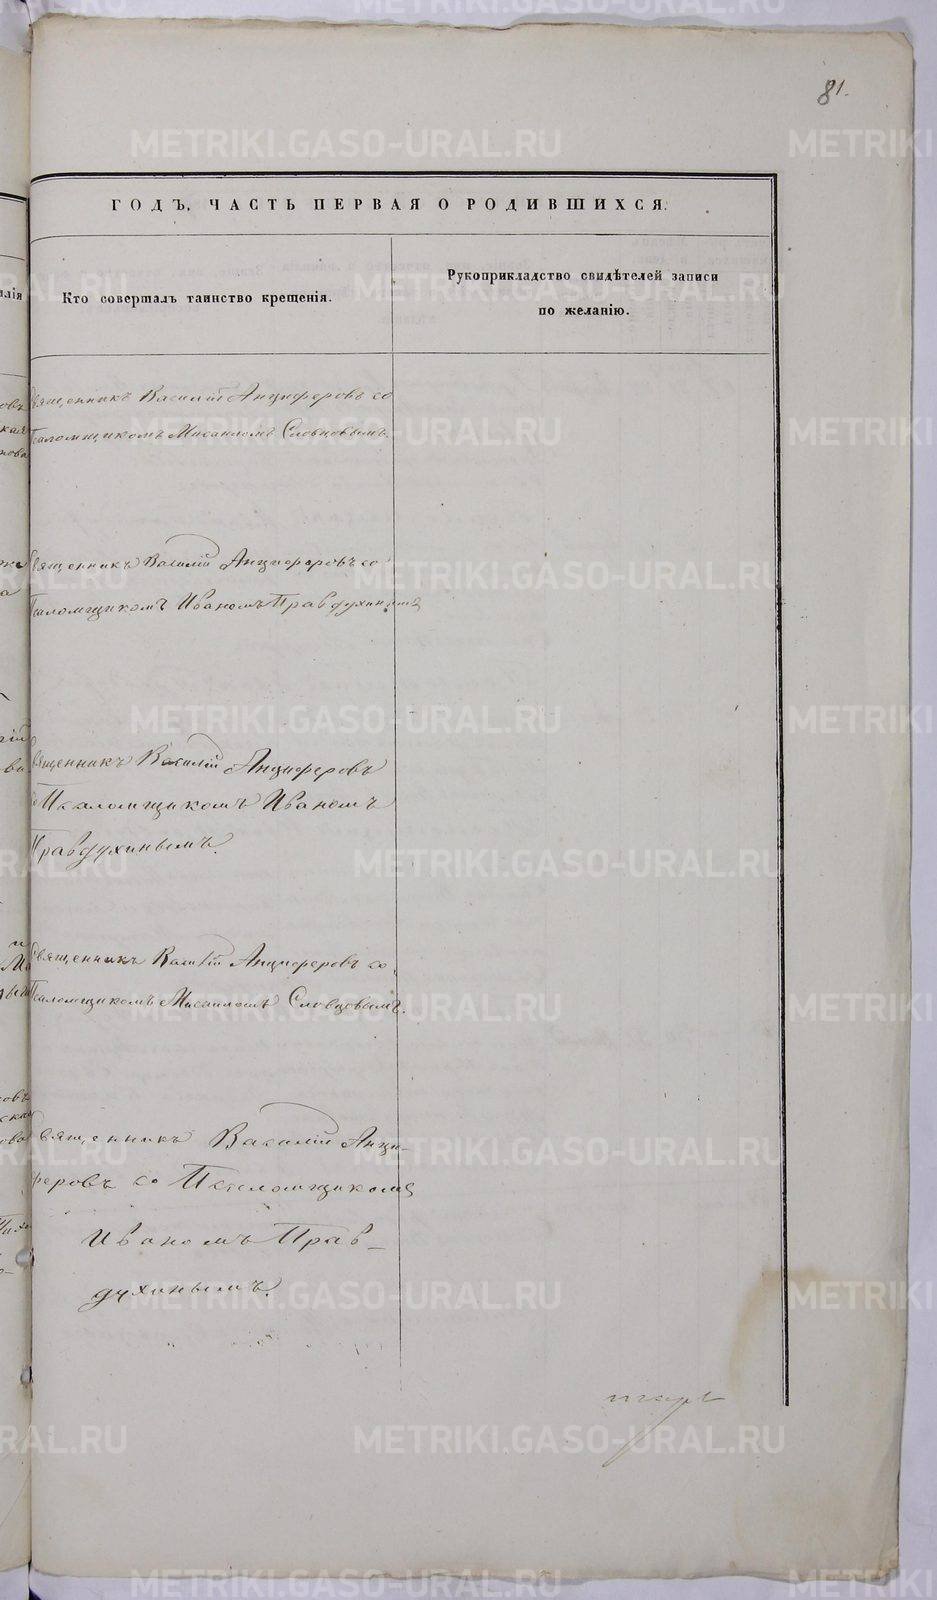 81.
ГОДЪ, ЧАСТЬ ПЕРВАЯ О РОДИВШИХСЯ.
Кто совершалъ таинство крещенія.
Рукоприкладство свидѣтелей записи
по желанію.
Священникъ Василій Анциферовъ со
Псаломщикомъ Мисаиломъ Словцовымъ.
Священникъ Василій Анциферовъ со
Псаломщикомъ Иваномъ Правдухинымъ
Священникъ Василій Анциферовъ
со Псаломщикомъ Иваномъ
Правдухинымъ.
Священникъ Василій Анциферовъ со
Псаломщикомъ Мисаиломъ Словцовымъ.
Священникъ Василій Анци-
феровъ со Псаломщикомъ
Иваномъ Прав-
духинымъ.
METRIKI.GASO-URAL.RU